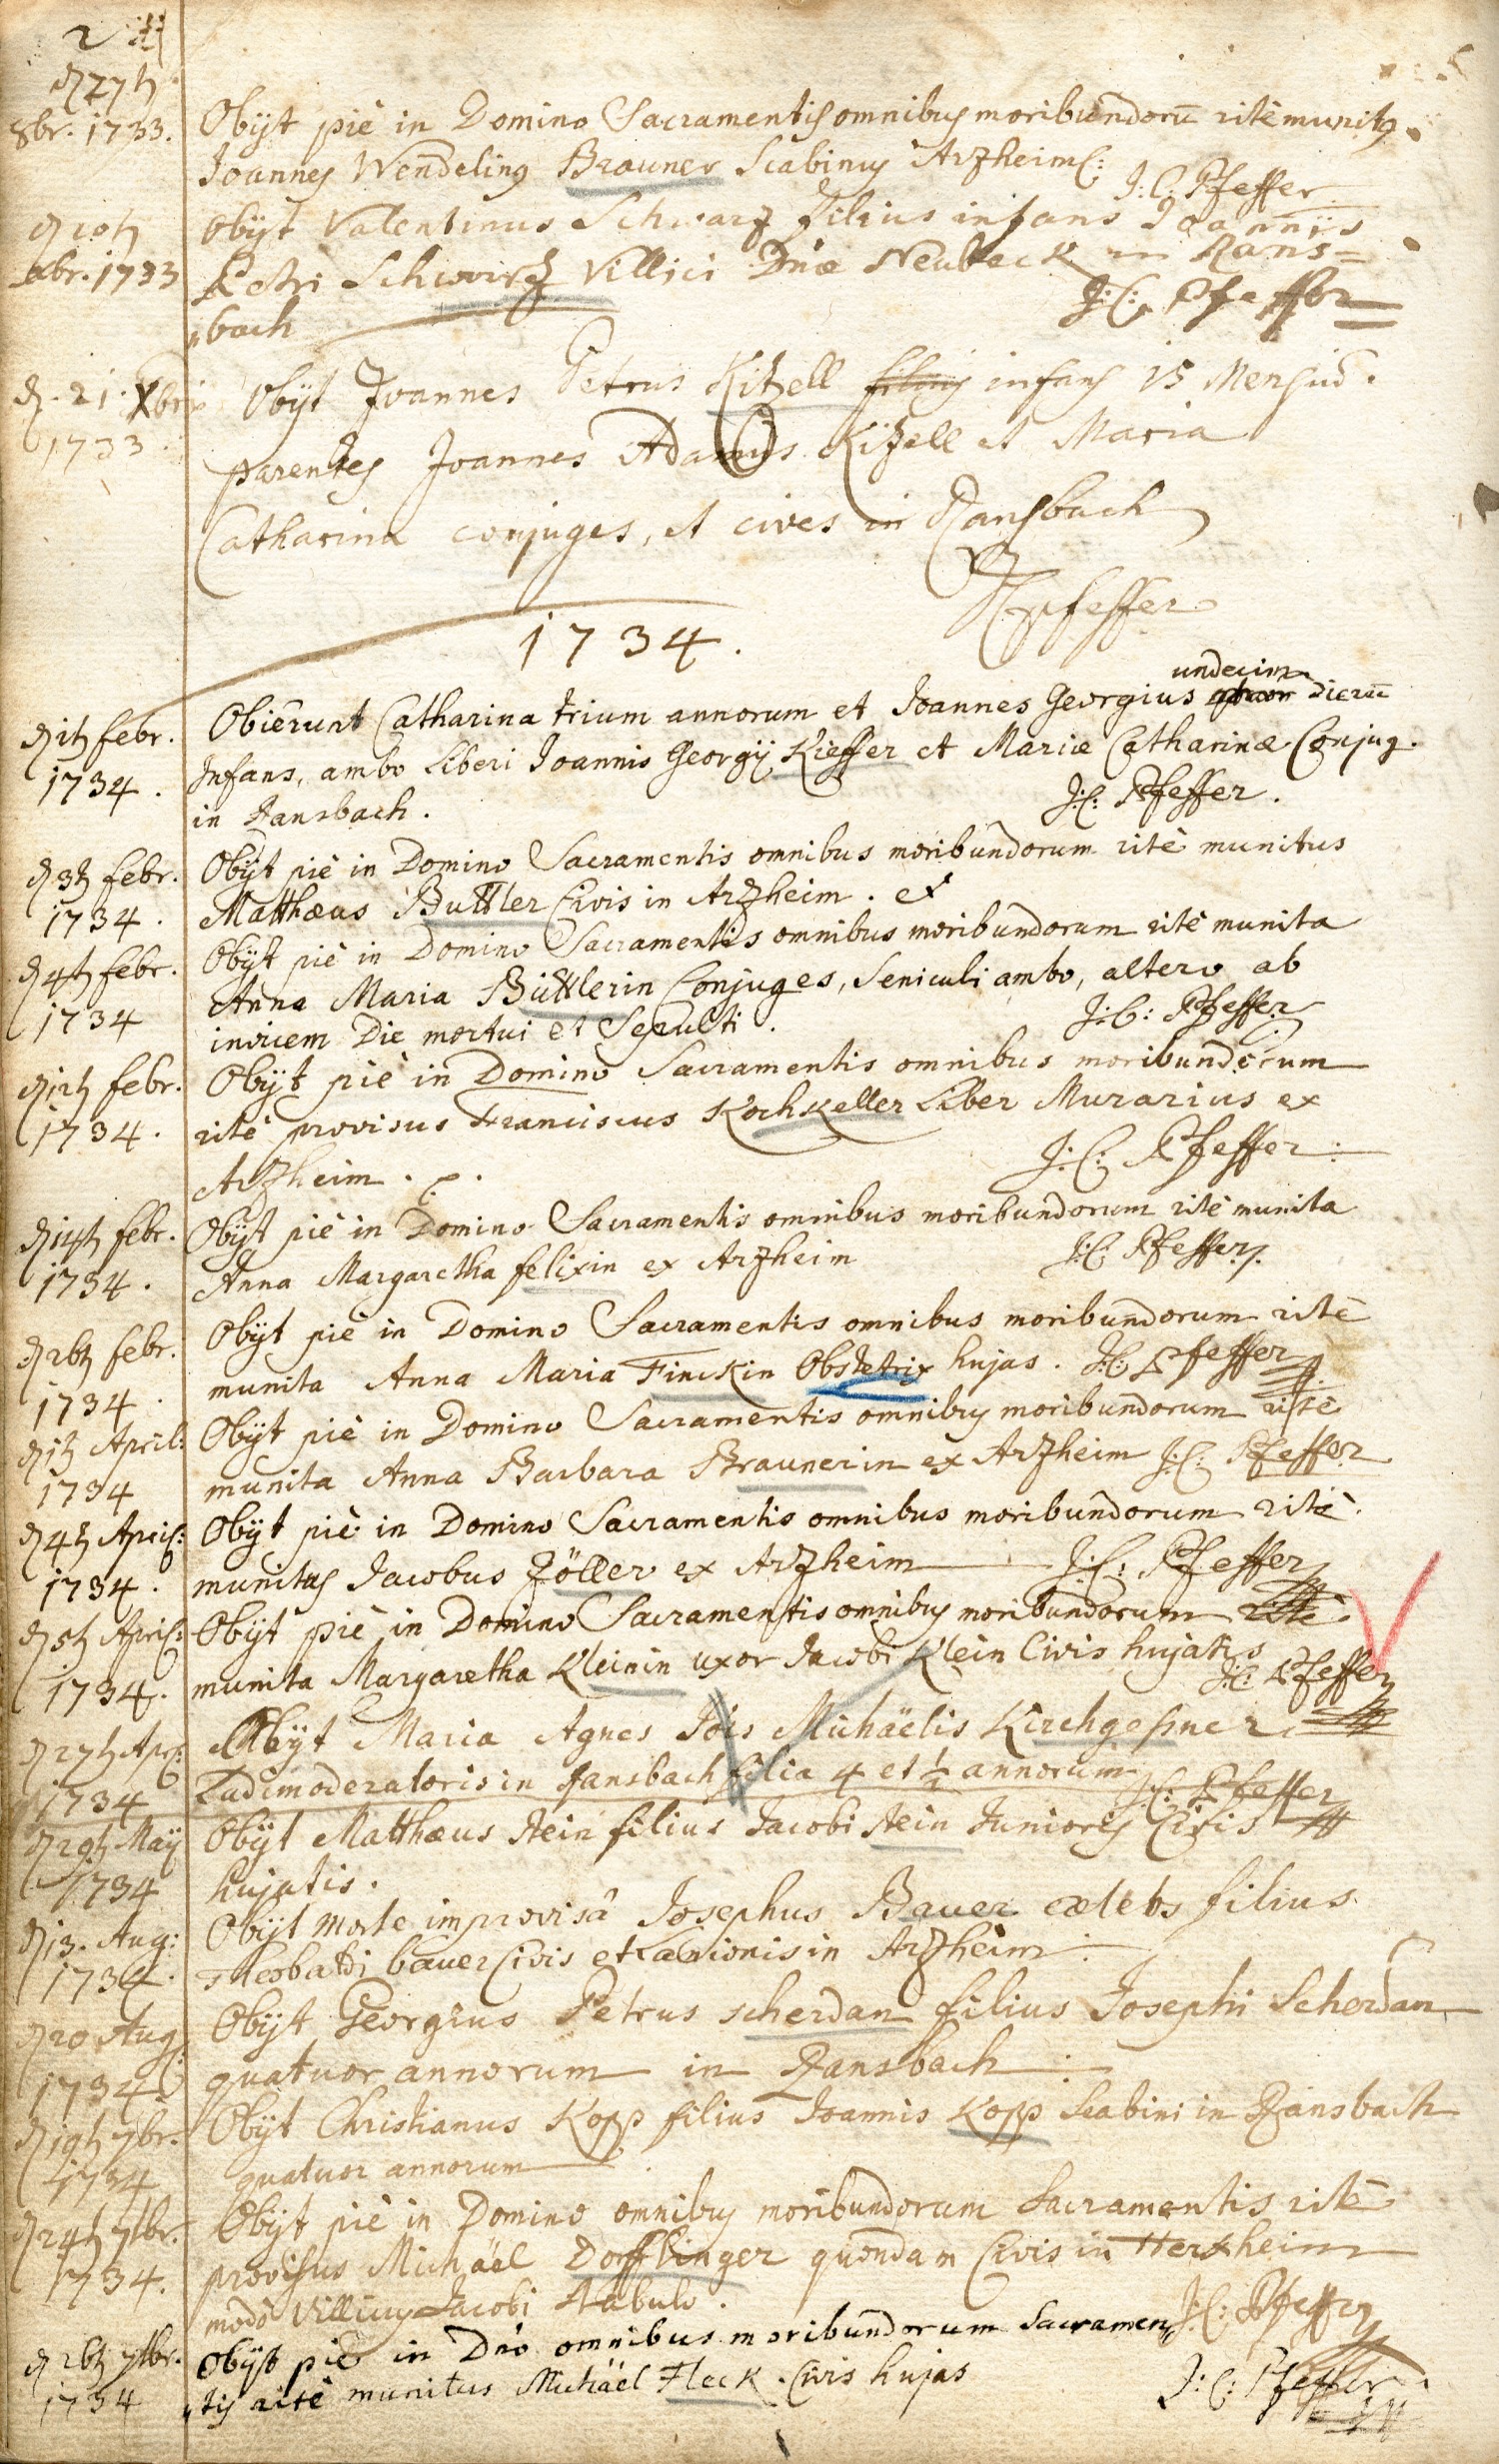 2
d 27t
8br. 1733.
Obijt piè in Domino Sacramentis omnibus moribundorū ritè munitus
Joannes Wendelinus Brauner Scabinus Arzheim: J: C: Pfeffer
d 10t
xbr. 1733
Obijt Valentinus Schwarz filius infans Joannis
Petri Schwartz Villici Dnæ Neubeck in Rans=
bach
J: C: Pfeffer
d. 21. Xbris
1733.
Obijt Joannes Petrus Kitzell filius infans 15 Mensiū.
parentes Joannes Adamus Kitzell et Maria
Catharina conjuges, et cives in Ransbach
JCpfeffer
1734.
undecim
d 1t febr.
1734.
Obierunt Catharina trium annorum et Joannes Georgius dierū
Infans, ambo liberi Joannis Georgij Kieffer et Mariæ Catharinæ Conjug.
in Ransbach. J: C: Pfeffer.
d 3t febr.
1734.
Obijt piè in Domino Sacramentis omnibus moribundorum ritè munitus
Matthæus Buttler Civis in Arzheim. et
d 4t febr.
1734
Obijt piè in Domino Sacramentis omnibus moribundorum ritè munita
Anna Maria Büttlerin Conjuges, Seniculi ambo, altero ab
invicem Die mortui et Sepulti. J: C: Pfeffer
d 12t febr.
1734.
Obijt piè in Domino Sacramentis omnibus moribundorum
ritè provisus Franciscus Kochkeller Liber Murarius ex
Arzheim. J: C: Pfeffer
d 14t febr.
1734.
Obijt piè in Domino Sacramentis omnibus moribundorum ritè munita
Anna Margaretha felixin ex Arzheim J: C: Pfeffer
d 26t febr.
1734.
Obijt piè in Domino Sacramentis omnibus moribundorum ritè
munita Anna Maria Finckin Obstetrix hujas. J: C: Pfeffer
d 1t April:
1734
Obijt piè in Domino Sacramentis omnibus moribundorum ritè
munita Anna Barbara Braunerin ex Arzheim J: C: Pfeffer
d 4t April:
1734.
Obijt piè in Domino Sacramentis omnibus moribundorum ritè
munitus Jacobus Zöller ex Arzheim J: C: Pfeffer
d 5t April:
1734.
Obijt piè in Domino Sacramentis omnibus moribundorum ritè
munita Margaretha Kleinin uxor Jacobi Klein Civis hujatis J: C: Pfeffer
d 27t Apr:
1734
Obijt Maria Agnes Jois Michäelis Kirchgeßner
Ludimoderatoris in Ransbach filia 4 et ½ annorum J: C: Pfeffer
d 29t Maij
1734
Obijt Matthæus Rein filius Jacobi Rein Junioris Civis
hujatis.
d 13. Aug:
1734.
Obijt morte improvisâ Josephus Bauer cælebs filius
Theobaldi bauer Civis et Lanionis in Arzheim
d 20 Aug:
1734
Obijt Georgius Petrus scherdan filius Josephi Scherdan
quatuor annorum in Ransbach
d 19t 7br.
1734
Obijt Christianus Kopp filius Joannis Kopp Scabini in Ransbach
quatuor annorum
d 24t 7br.
1734.
Obijt piè in Domino omnibus moribundorum Sacramentis ritè
provisus Michäel Dorfflinger quondam Civis in Herxheim
modo Villicus Jacobi Stabulo. J: C: Pfeffer
d 26t 7br.
1734
Obijt piè in Dno omnibus moribundorum Sacramen
tis ritè munitus Michäel Fleck Civis hujas J: C: Pfeffer